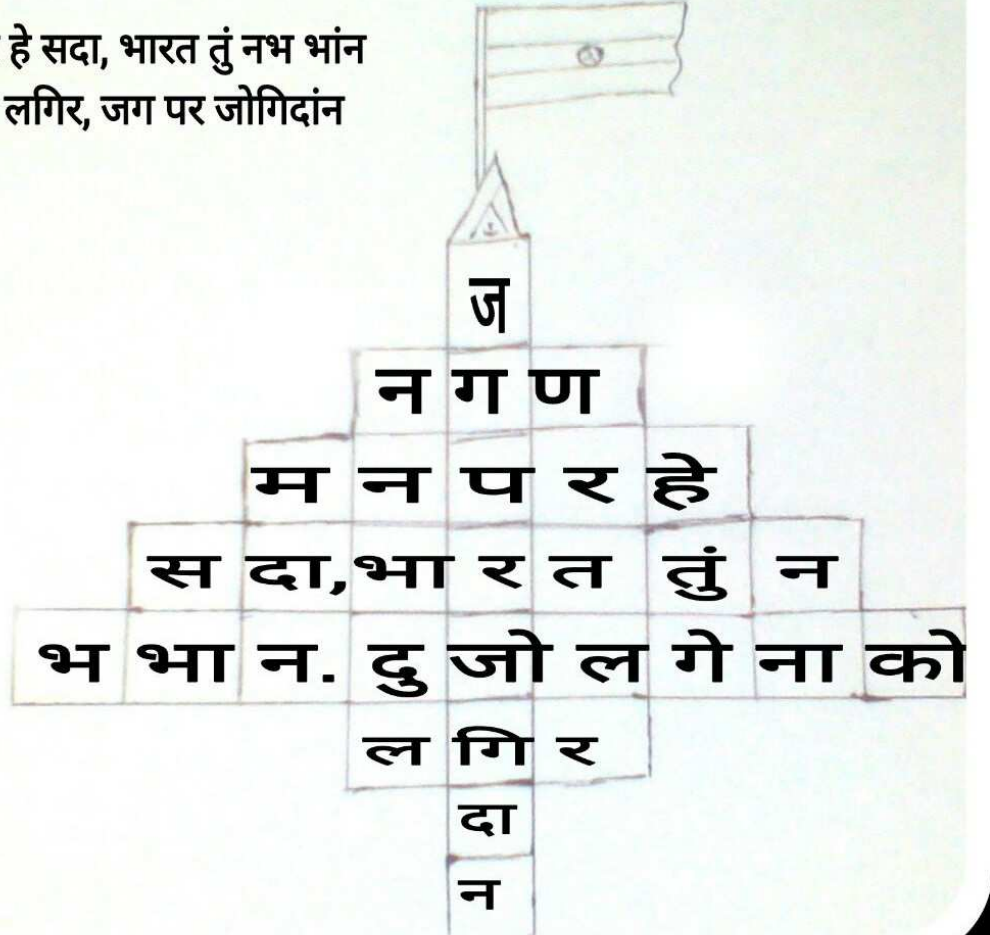 हे सदा, भारत तुं नभ भांन
लगिर, जग पर जोगिदांन
ज
न ग ण
म न प र हे
स दा, भा र त तुं न
भ भा न. दु जो ल गे ना को
ल गि र
दा
न